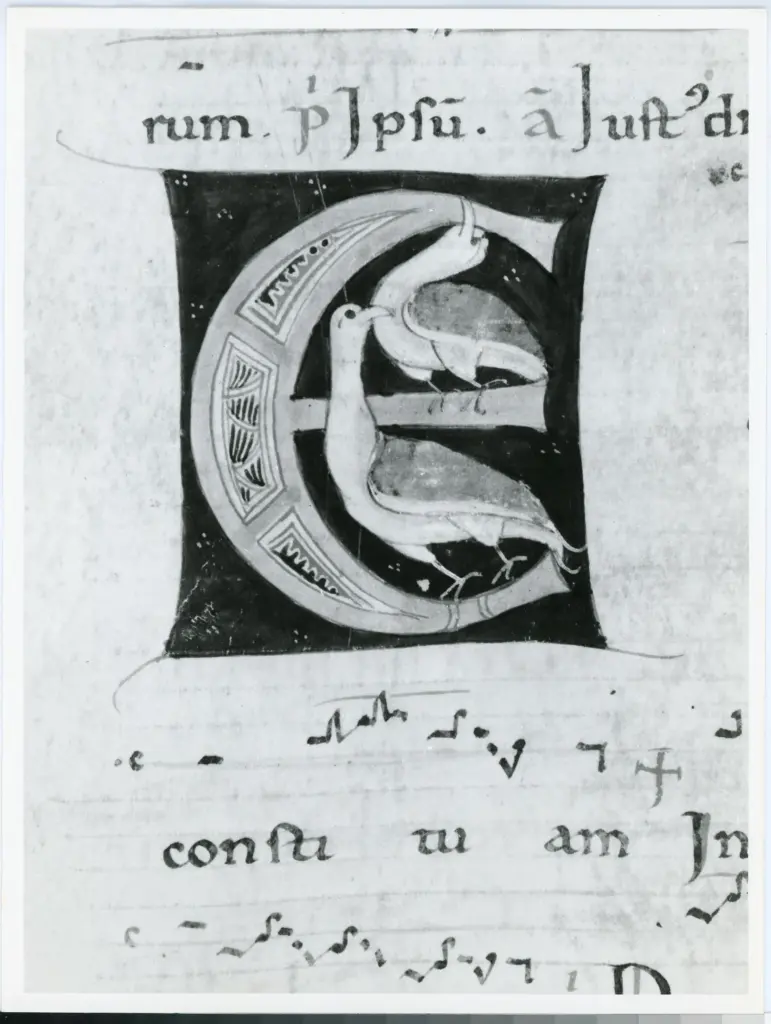 rum. p̄ Jpſū. ā Juſtꝰ dn
E
conſti tu am Jn